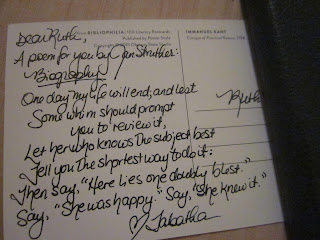 Dear Ruth,
A poem for you by Jan Struther:
Biography
One day my life will end; and lest
Some whim should prompt
you to review it,
Let her who knows the subject best
Tell you the shortest way to do it:
Then say, "Here lies one doubly blest."
Say, "She was happy." Say, "She knew it."
Tabatha
BIBLIOPHILIA: 100 Literary Postcards
Published by Potter Style
IMMANUEL KANT
Critique of Practical Reason, 1788